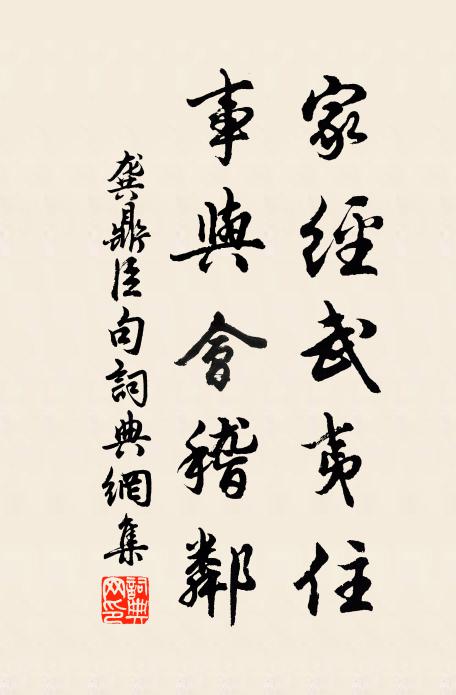 家經武夷住
事與會稽鄰
龔鼎臣句詞典網集
詞典網印